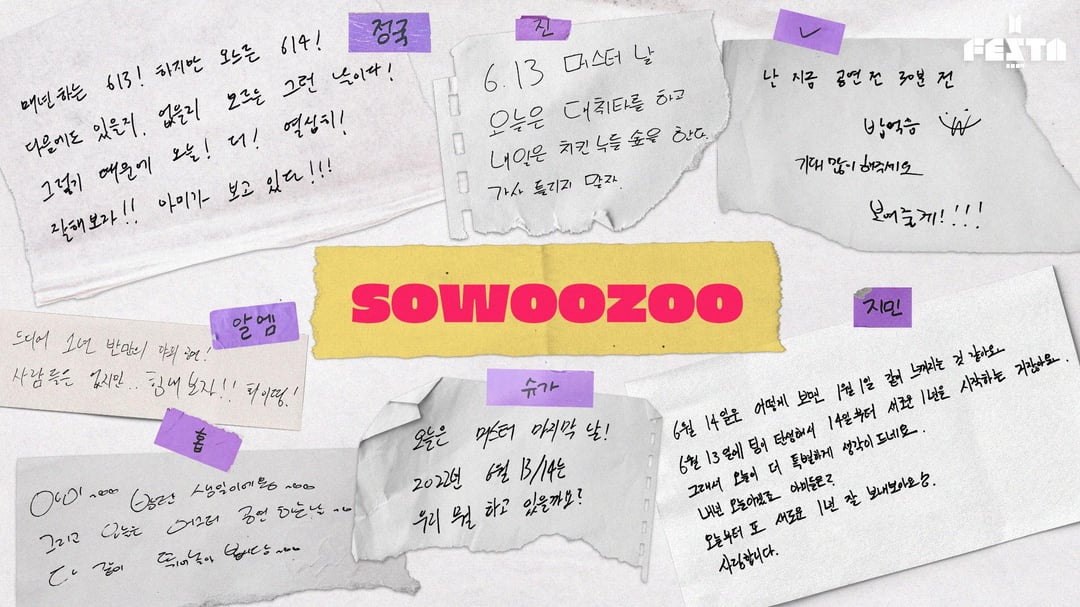 FESTA
정국
매년 하는 613! 하지만 오느른 614!
다음에도 있을지, 없을지 모르는 그런 날이다!
그렇기 때문에 오늘! 더! 열심히!
잘해보자!! 아미가 보고 있다!!!
진
6.13 머스터 날
오늘은 대취타를 하고
내일은 치킨 누들 숲을 한다.
가사 틀리지 말자.
V
난 지금 공연 전 30분 전
기대 많이 해주세요
보여줄게!!!!
SOWOOZOO
알엠
드디어 2년 반만의 야외 공연!
사람들은 없지만.. 힘내보자!!
홉
생일이에요~
그리고 오늘은 머스터 공연 하는 날~
다 같이 뛰어놀아 봅시다~
슈가
오늘은 머스터 마지막 날!
2022년 6월 13/14는
우리 뭘 하고 있을까요?
지민
6월 14일은 어떻게 보면 1월 1일 같이 느껴지는 것 같아요.
6월 13일에 팀이 탄생해서 14일부터 새로운 1년을 시작하는 거잖아요.
그래서 오늘이 더 특별하게 생각이 드네요.
내겐 오늘이겠죠 아미들은?
오늘부터 또 새로운 1년 잘 보내보아요.
사랑합니다.